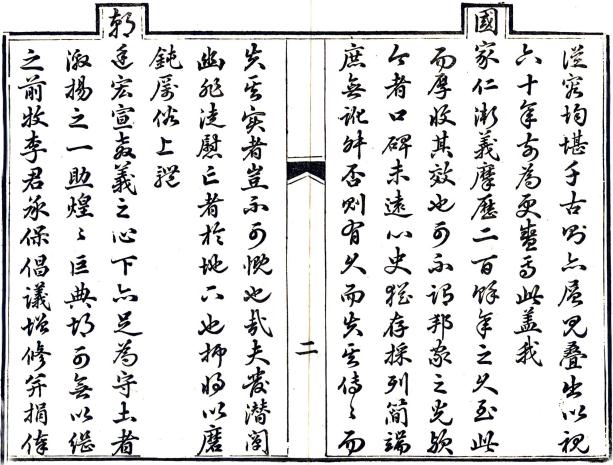 從容均堪千古則亦層見疊出以視
六十年前為更盛焉此蓋我
國家仁漸義摩歷二百餘年之久至此
而厚收其效也可不謂邦家之光歟
今者口碑未遠心史猶存採列簡端
庶無訛舛否則有久而失其傳〻而
二
失其實者豈不可慨也哉夫發潛闡
幽非徒慰亡者於地下也抑將以磨
鈍厲俗上體
朝廷宏宣教義之心下亦足為守土者
激揚之一助煌〻巨典胡可無以繼
之前牧李君承保倡議增修并捐俸